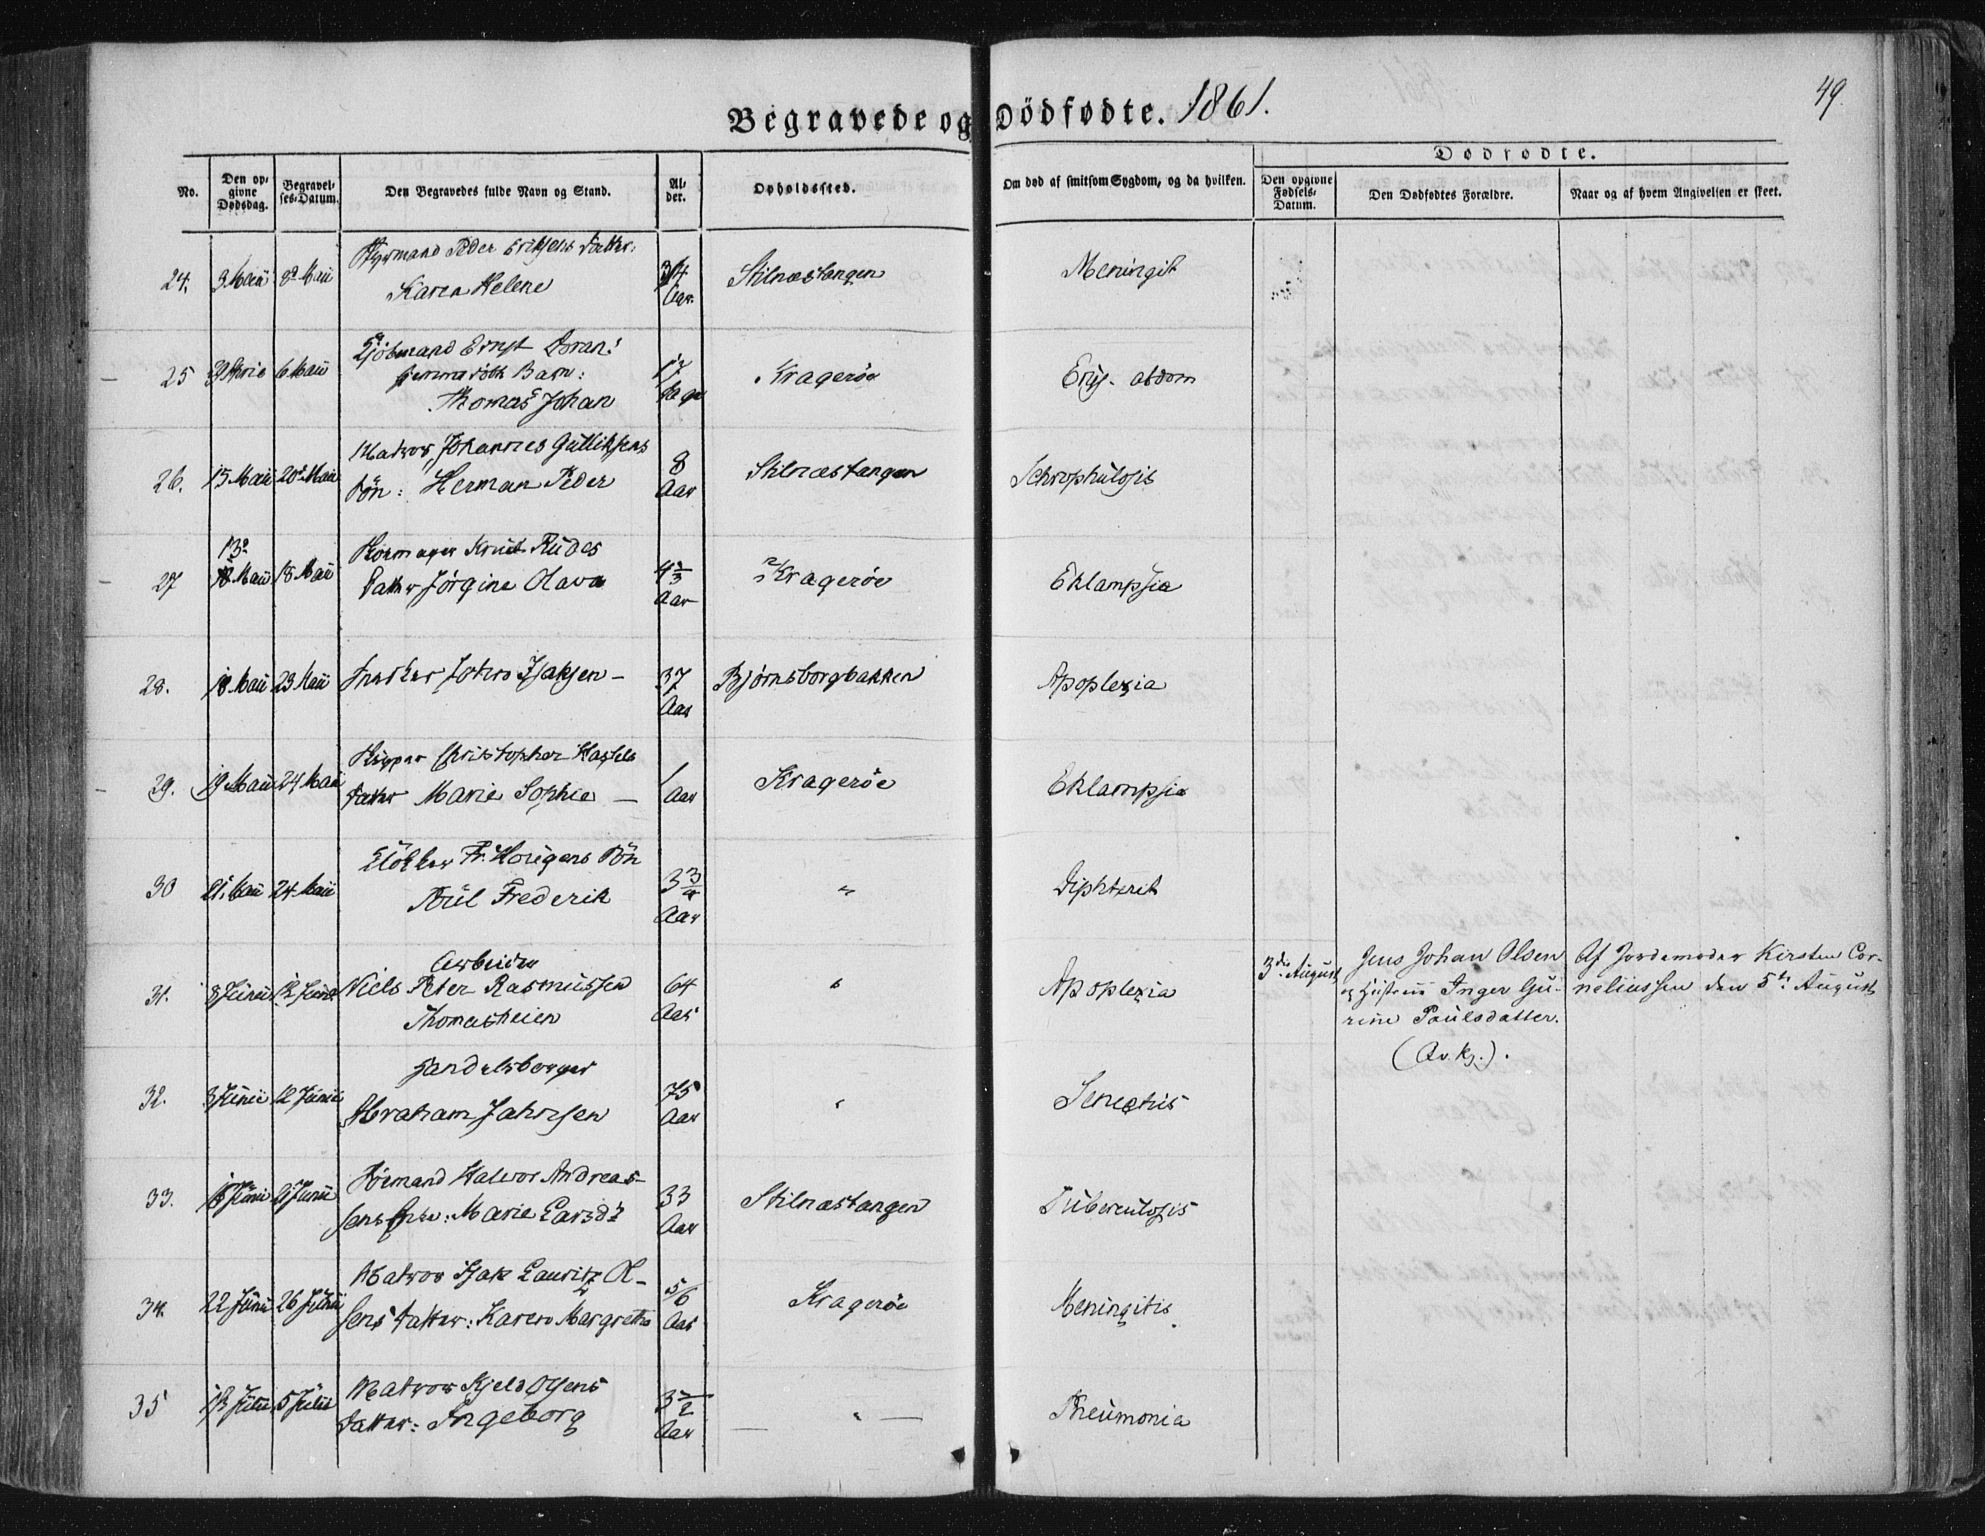 49.
Begravede og Dödfødte. 1861.
Dødfødte.
No.
Den opgivne Dødsdag.
Begravelses-Datum.
Den Begravedes fulde Navn og Stand.
Alder.
Opholdssted.
Om død af smitsom Sygdom, og da hvilken.
Den opgivne Fødsels-Datum.
Den Dødfødtes Forældre.
Naar og af hvem Angivelsen er skeet.
24. 3 Maii 8de Maii Styrmand Peder Eriksens Datter:
Karen Helene Stilnæstangen Meningit
25 6 Maii Ernst
Barn:
Thomas Johan 12 Kragerøe abdom
26. 15 Maii 20de Maii Matros Johannes Gulliksens
Søn: Herman Peder 8 Aar Stilnæstangen Schrophulosis
27 13de Maii 18 Maii Knut Rüdes
Datter Jörgine Olava 4 2/3 Aar Kragerøe Eklampsia
28. 18 Maii 23 Maii Isaksen – 37 Aar Bjørnsborgbakken Apoplexia
29. 19 Maii 24 Maii Skipper Christopher
Datter Marie Sophie – 1 Aar Kragerøe Eklampsia
30 21. Maii 24 Maii Fr. Søn
Frederik 3 3/4 Aar " Diphterit
31. 8 Junii 12 Junii Arbeider
Niels Peter Rasmussen
Thomesheien 64 Aar " Apoplexia
3die August
Jens Johan Olsen
og Hustrue Inger Gu-
rine Paulsdatter.
(Qv. kj.).
Af Jordemoder Kirsten Cor-
neliussen den 5te August
32. 8 Junii 12 Junii
Abraham Jahnsen 75 Aar " Senectus
33. 21 Junii Halvor Andreas-
sens Marie Larsdr 33 Aar Stilnæstangen Tuberculosis
34. 22 Junii 26 Junii Matros Isak Lauritz Ol-
sens Datter: Karen Margrethe 5/6 Aar Kragerøe Meningitis
35 5 Julii Matros Kjeld Olsens
Datter: Ingeborg 3 1/2 Aar — " — Pneumonia